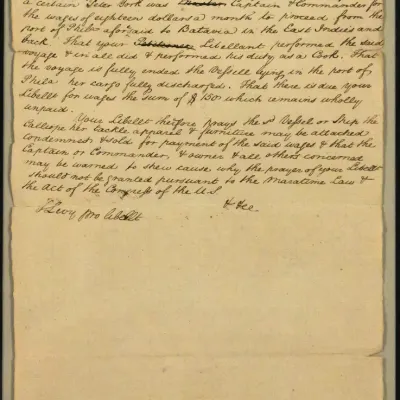 a certain Peter York was Captain & Commander for
the wages of eighteen dollars a month to proceed from the
port of Phila aforsaid to Batavia in the East Indies and
back. That your Petitioner Libellant performed the said
voyage & in all did & performed his duty as a Cook. That
the voyage is fully ended the Vessell lying in the port of
Phila. her cargo fully discharged. That there is due your
Libellt for wages the sum of $ 150 which remains wholly
unpaid.
Your Libellt therefore prays the sd Vessel or Ship the
Calliope her tackle apparel & furniture may be attached
condemned & sold for payment of the said wages & that the
Captain or Commander, & owner & all others concerned
may be warned to shew cause why the prayer of your Libellt
should not be granted pursuant to the Maratime Law &
the Act of the Congress of the U.S.
& &cc.
J Levy pro libellt